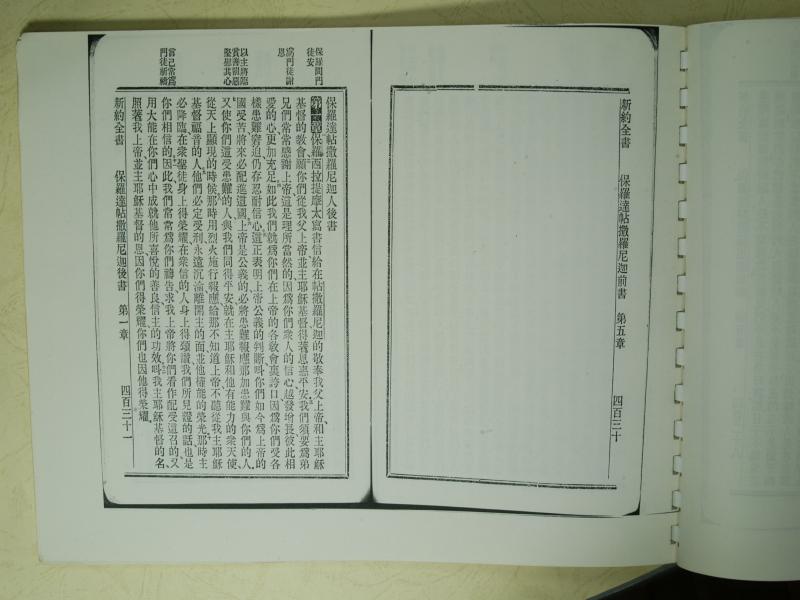 新約全書 保羅達帖撒羅尼迦前書 第五章 四百三十
保羅問門
徒安
爲門徒謝
恩
以主將臨
賞善罰惡
堅慰其心
言己常爲
門徒祈禱
保羅達帖撒羅尼迦人後書
第一章保羅西拉提摩太寫書信給在帖撒羅尼迦的敬奉我父上帝、和主耶穌
基督的教會願你們從我父上帝並主耶穌基督得著恩惠平安我們須要爲弟
兄們常常感謝上帝這是理所當然的因爲你們衆人的信心越發增長彼此相
愛的心更加充足如此我們就爲你們在上帝的各敎會裏誇口因爲你們受各
樣患難窘迫仍存忍耐信心這正表明上帝公義的判斷呌你們如今爲上帝的
國受苦將來必配進這國上帝是公義的必將患難報應那加患難與你們的人、
又使你們這受患難的人與我們同得平安就在主耶穌和他有能力的衆天使
從天上顯現的時候那時用烈火施行報應給那不知道上帝不聽從我主耶穌
基督福音的人他們必定受刑永遠沉淪離開主的面並他權能的榮光那時主
必降臨在衆聖徒身上得榮耀在衆信的人身上得頌讚我們所見證的話也是
你們相信的因此我們常常爲你們禱告求我上帝將你們看作配受這召的又
用大能在你們心中成就他所喜悅的善良信主的功效呌我主耶穌基督的名、
照著我上帝並主耶穌基督的恩因你們得榮耀你們也因他得榮耀、
新約全書 保羅達帖撒羅尼迦後書 第一章 四百三十一